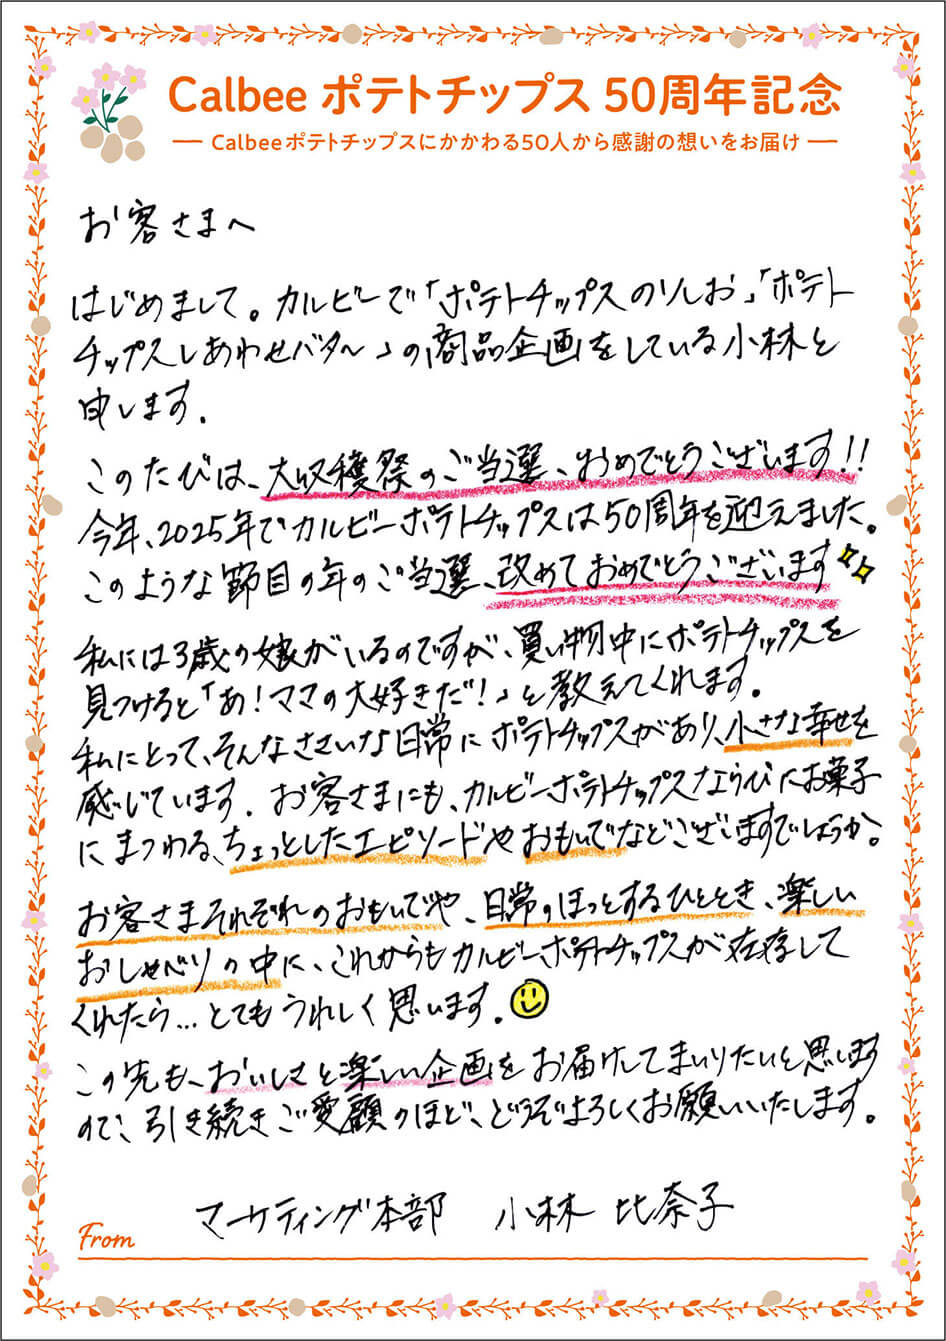 Calbee ポテトチップス 50周年記念
Calbeeポテトチップスにかかわる50人から感謝の想いをお届け
お客さまへ
はじめまして。カルビーで「ポテトチップスのりしお」「ポテト
チップスしあわせバタ～」の商品企画をしている小林と
申します.
このたびは、大収穫祭のご当選、おめでとうございます!!
今年、2025年でカルビーポテトチップスは50周年を迎えました。
このような節目の年のご当選、改めておめでとうございます
私には3歳の娘がいるのですが、買い物中にポテトチップスを
見つけると「あ!ママの大好きだ!」と教えてくれます.
私にとって、そんなささいな日常にポテトチップスがあり、小さな幸せを
感じています. お客さまにも、カルビーポテトチップスならびにお菓子
にまつわる、ちょっとしたエピソードやおもいでなどございますでしょうか。
お客さまそれぞれのおもいでや、日常のほっとするひととき、楽しい
おしゃべりの中に、これからもカルビーポテトチップスが存在して
くれたら...とてもうれしく思います.
この先も、おいしさと楽しい企画をお届けしてまいりたいと思います
ので、引き続きご愛顧のほど、どうぞよろしくお願いいたします。
マーケティング本部 小林 比奈子
From